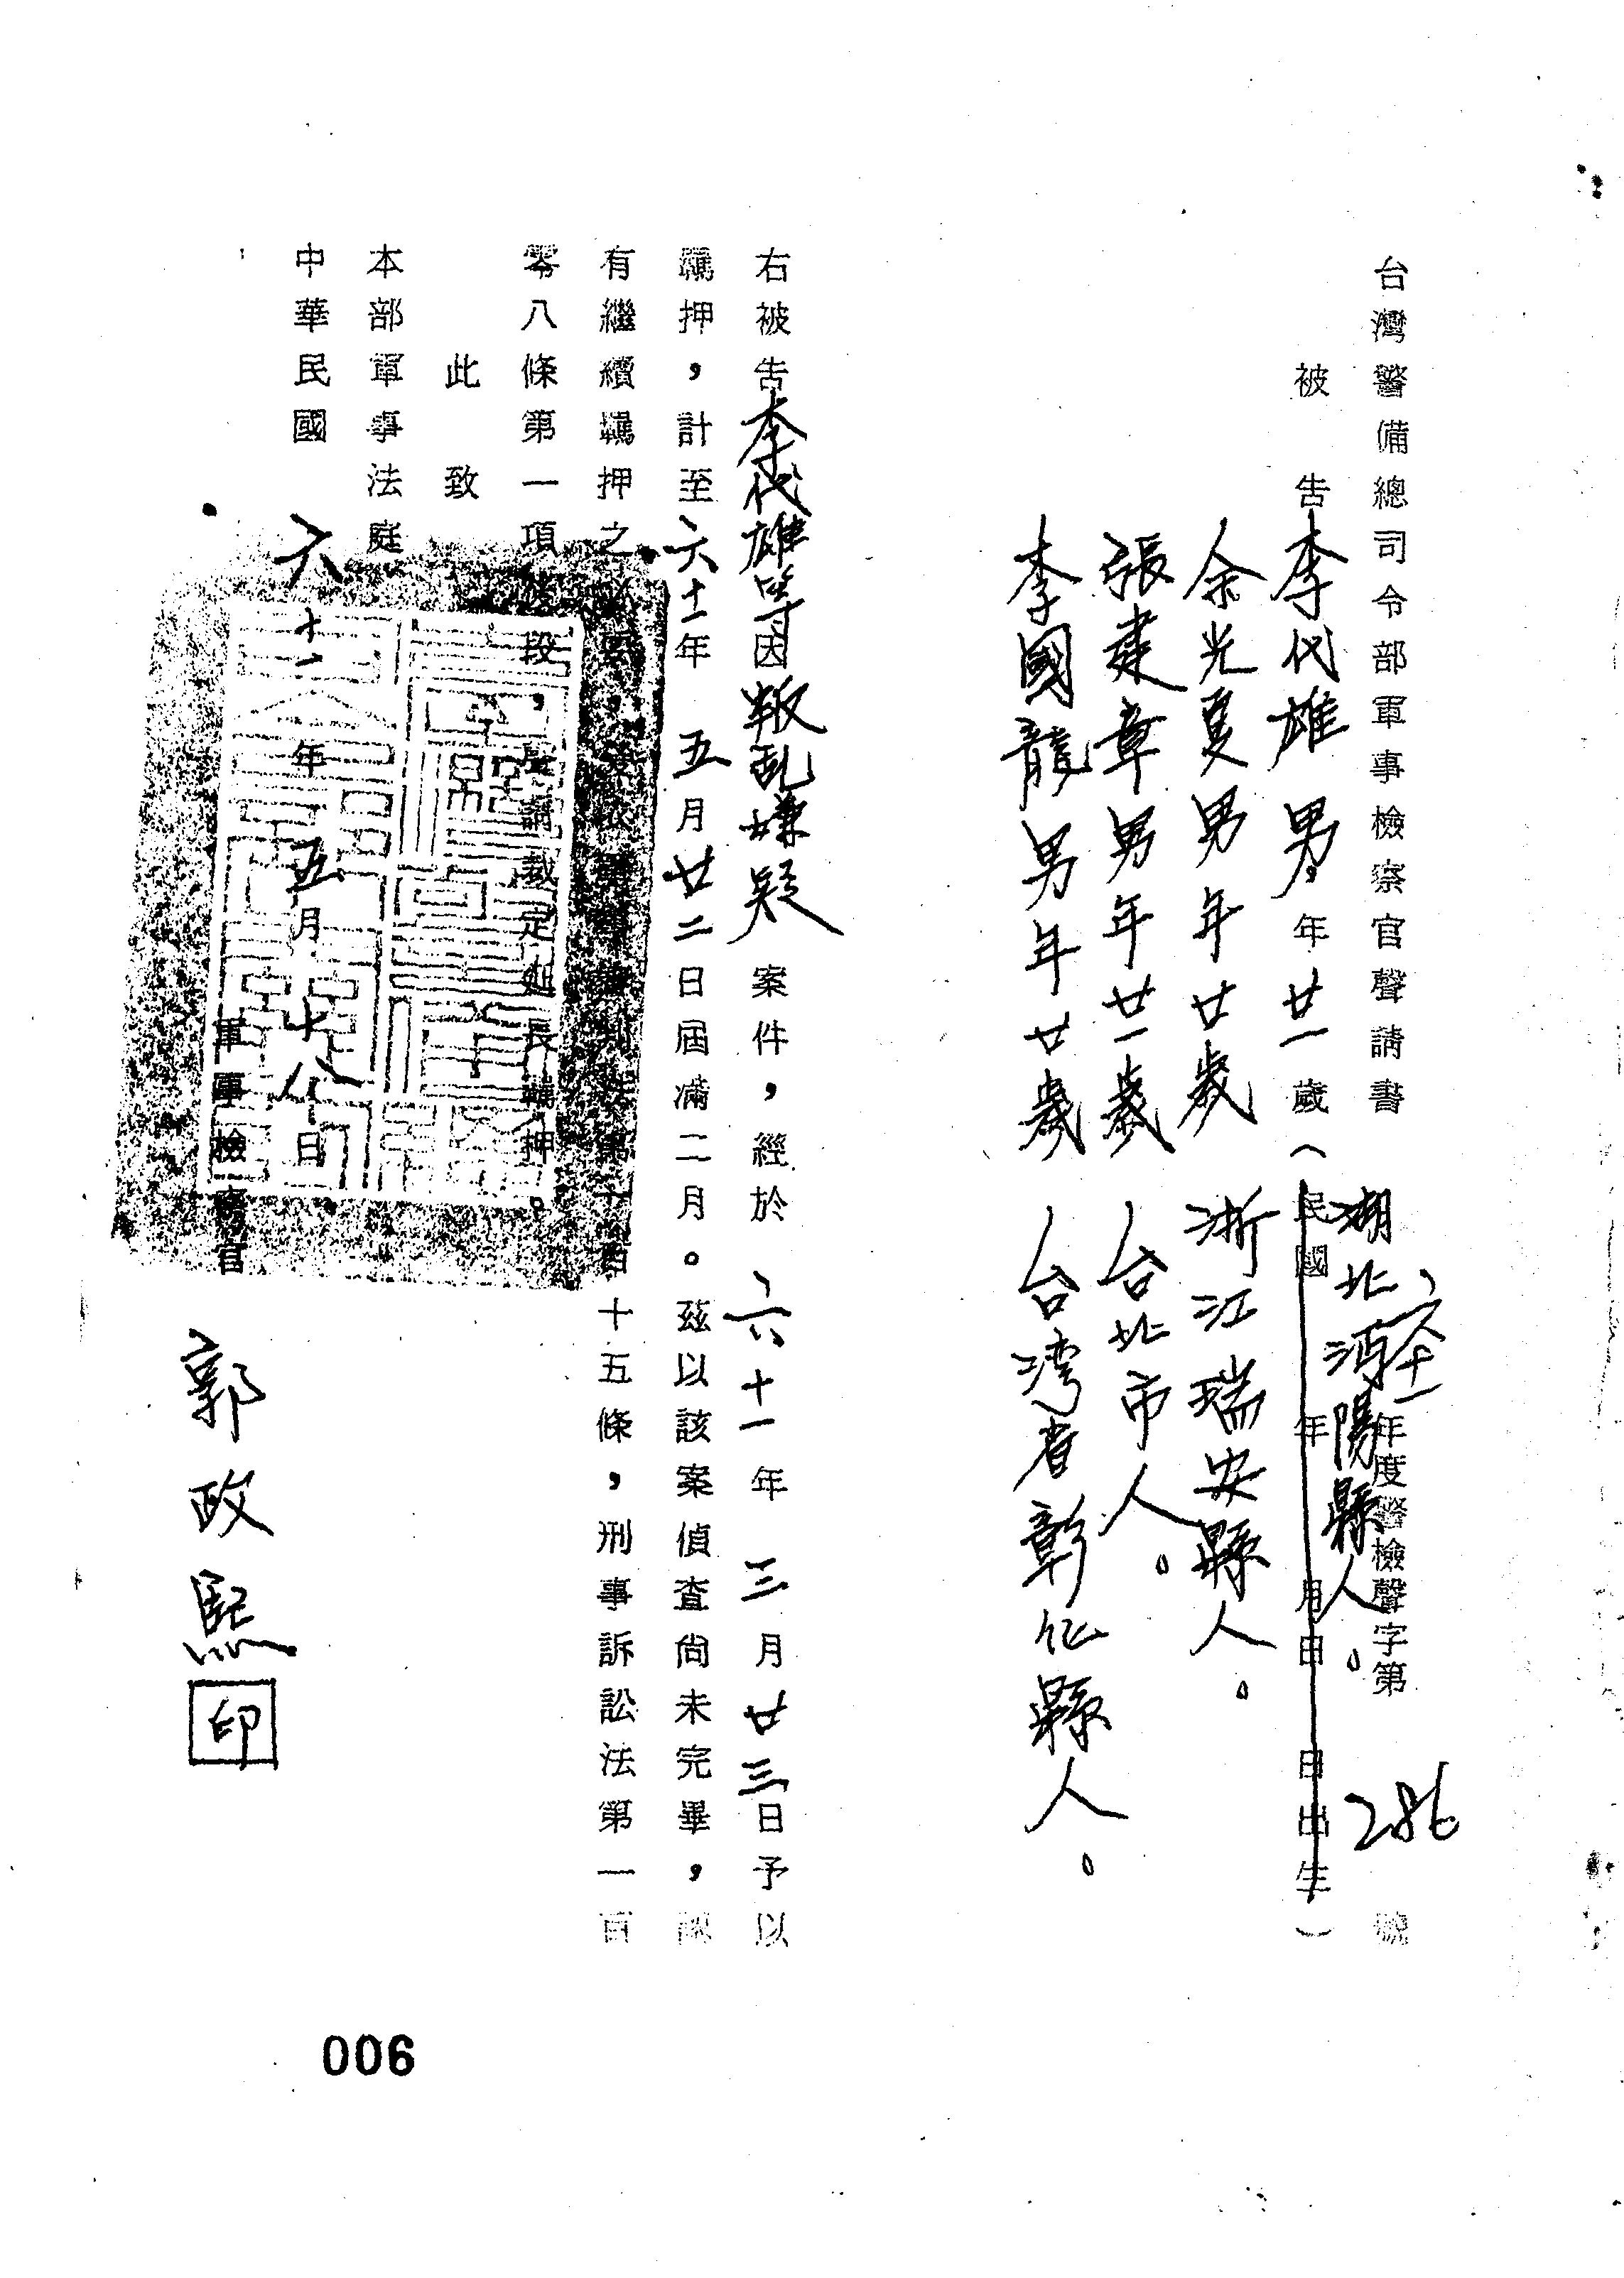 台灣警備總司令部軍事檢察官聲請書 六十一年度警檢聲字第286號
被告李代雄 男 年廿一歲(民國 年 月 日 日出生) 湖北沔陽縣人。
余光夏男年廿歲 浙江瑞安縣人。
張建章男年廿一歲 台北市人。
李國龍男年廿歲 台灣省彰化縣人。
右被告李代雄等因叛乱嫌疑案件,經於六十一年三月廿三日予以
羈押,計至六十一年五月廿二日屆滿二月。茲以該案偵查尚未完畢,認
有繼續羈押之必要,爰依軍事審判法第一百十五條,刑事訴訟法第一百
零八條第一項後段,聲請裁定延長羈押。
此致
本部軍事法庭
中華民國六十一年五月十八日
軍事檢察官 郭政熙 印
006